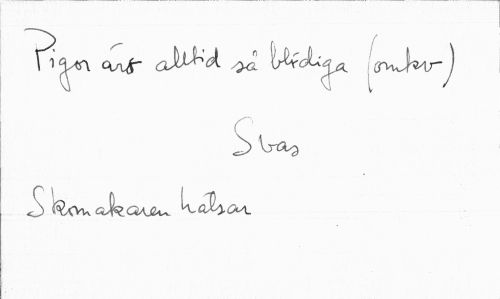 Pigor äro alltid så blidiga (omkv)
Svas
Skomakaren hälsar